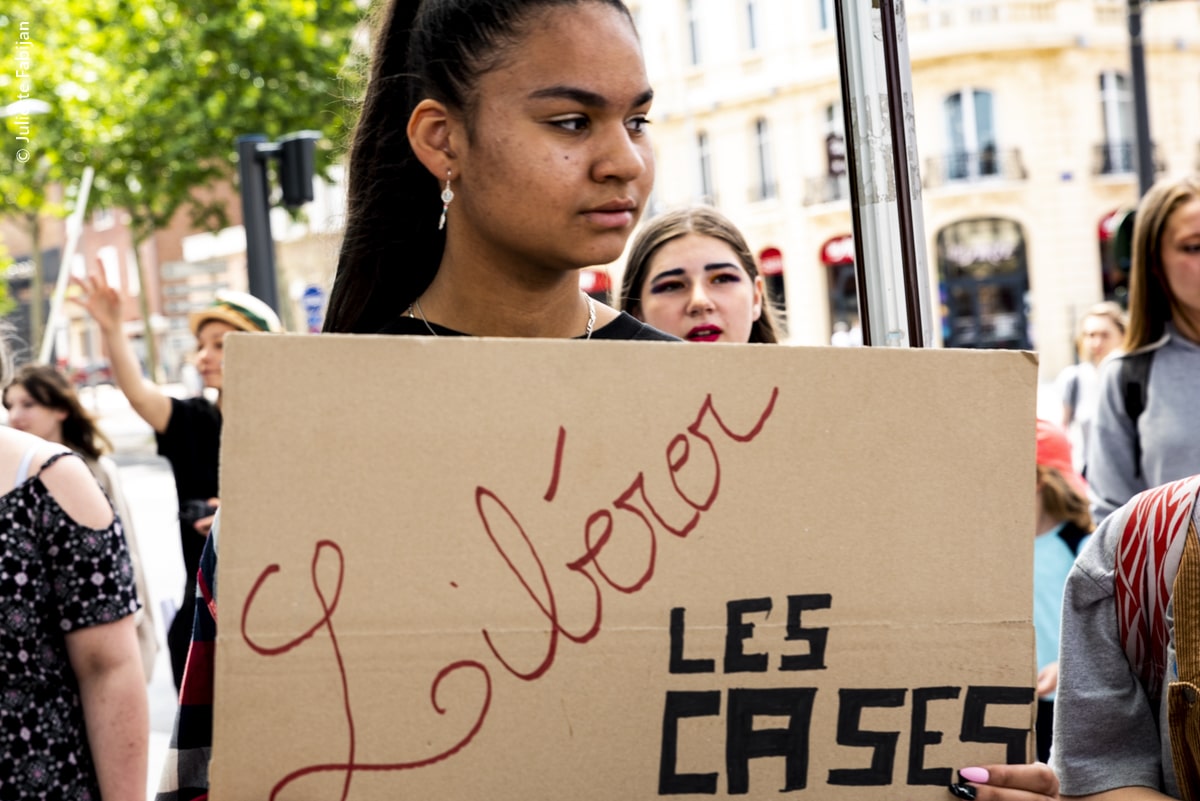 © Juliette Fabijan
Libérer
LES
CASES